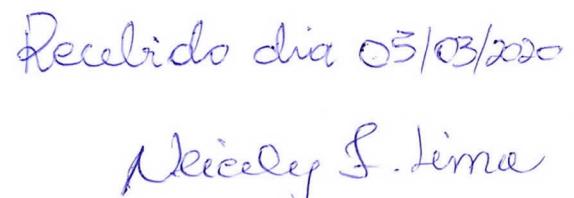 Recebido dia 05/03/2020
Neicely F. Lima